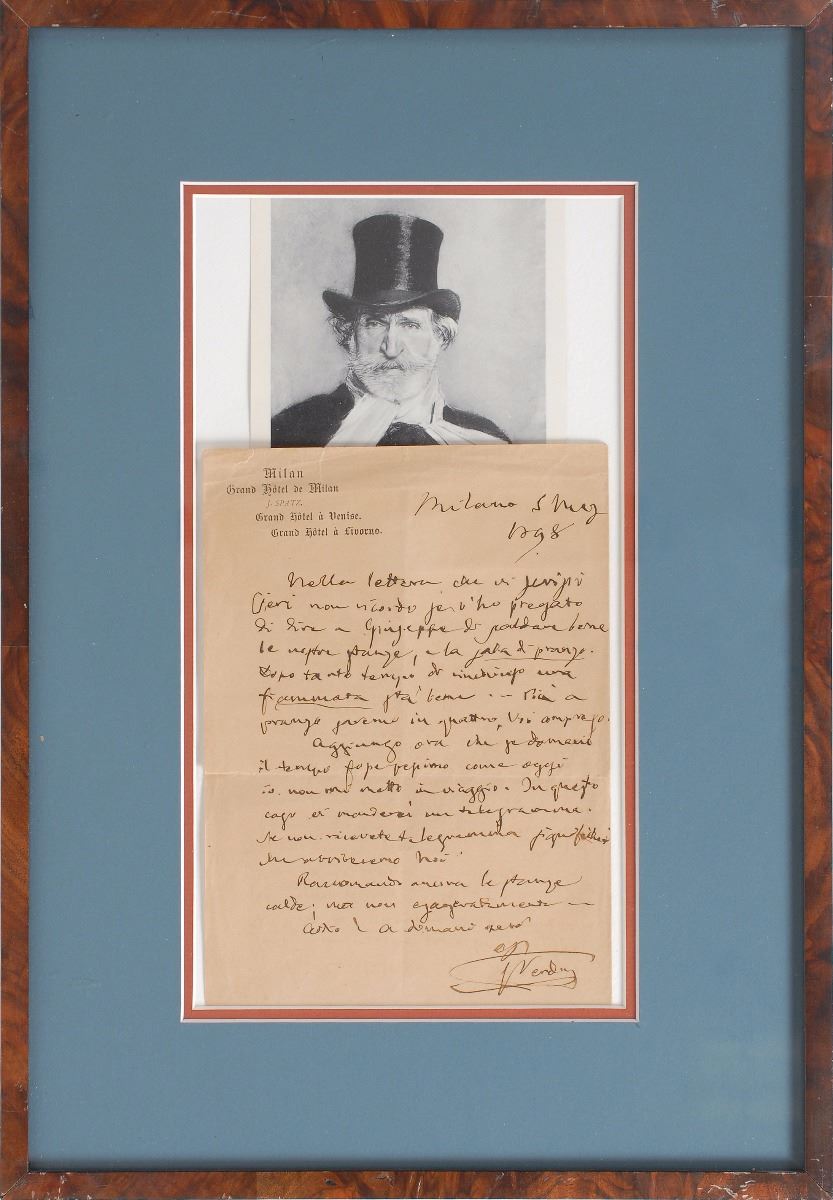 Milan
Grand Hôtel de Milan
J. SPATZ.
Grand Hôtel à Venise.
Grand Hôtel à Livorno.
Milano 5 Mag
1898
Nella lettera che vi scrissi
jeri non ricordo se v'ho pregato
di dire a Giuseppe di scaldare bene
le nostre stanze, e la sala di pranzo.
Dopo tanto tempo di una
fiammata sta bene . — Più a
pranzo saremo in quattro, Voi compreso.
Aggiungo ora che se domani
il tempo fosse pessimo come oggi
io non mi metto in viaggio. In questo
caso vi manderei un telegramma.
Se non ricevete telegramma significherà
che arriveremo Noi
Raccomando ancora le stanze
calde; ma non esageratamente —
a domani sera
G Verdi